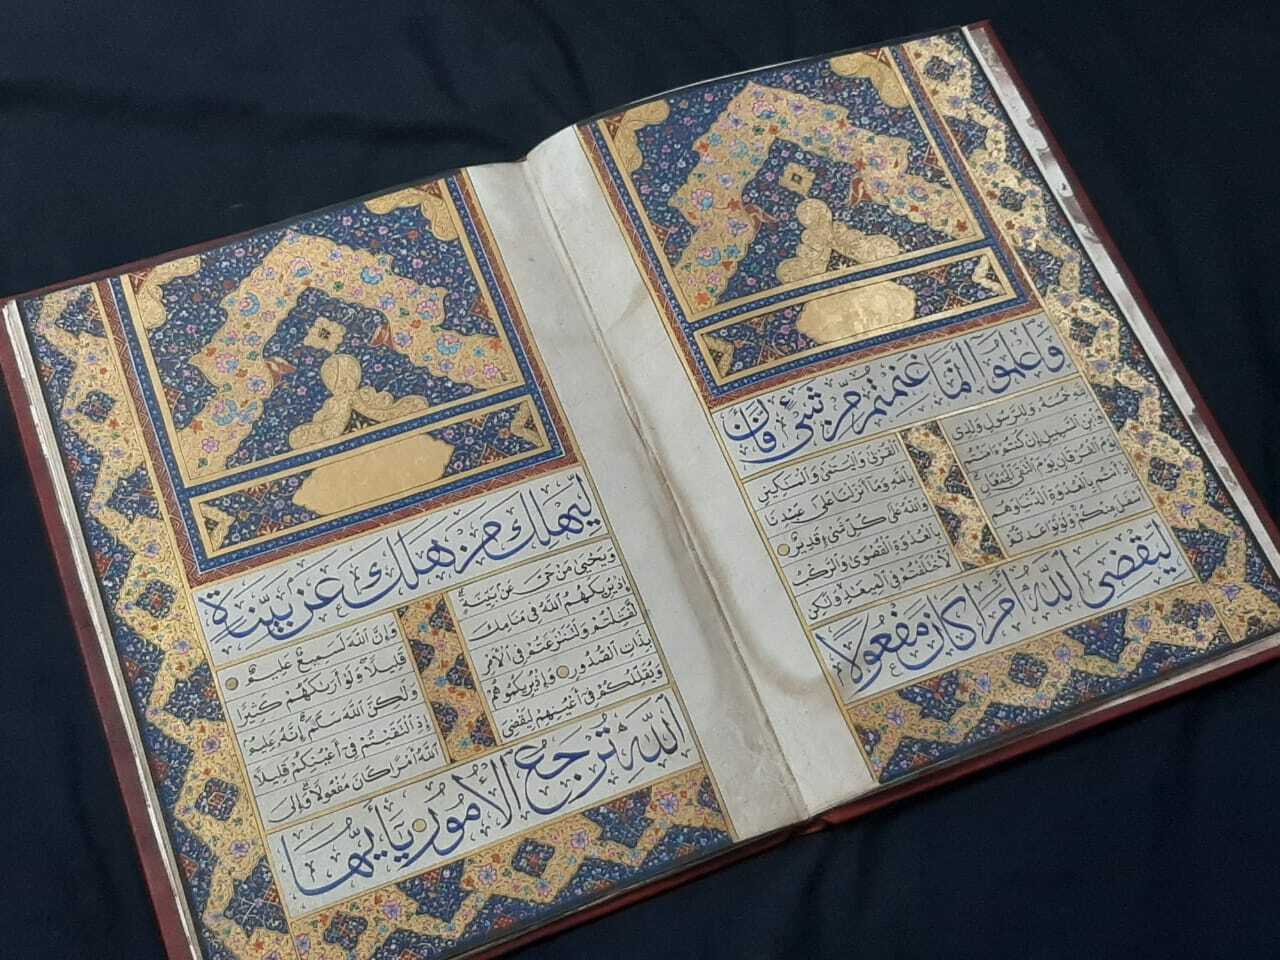 وَاعْلَمُوٓا اَنَّمَا غَنِمْتُمْ مِنْ شَىْءٍ فَاَنَّ
لله خُمُسَهُ وَلِلرَّسُولِ وَلِذِى الْقُرْبٰى وَالْيَتٰمٰى وَالْمَسٰكِينِ
وَابْنِ السَّبِيلِ اِنْ كُنْتُمْ ءَامَنْتُمْ بِاللهِ وَمَآ اَنْزَلْنَا عَلٰى عَبْدِنَا
يَوْمَ الْفُرْقَانِ يَوْمَ الْتَقَى الْجَمْعَانِ وَاللهُ عَلٰى كُلِّ شَىْءٍ قَدِيرٌ
اِذْ اَنْتُمْ بِالْعُدْوَةِ الدُّنْيَا وَهُمْ بِالْعُدْوَةِ الْقُصْوٰى وَالرَّكْبُ
اَسْفَلَ مِنْكُمْ وَلَوْ تَوَاعَدْتُمْ لَاخْتَلَفْتُمْ فِى الْمِيعٰدِ وَلٰكِنْ
لِيَقْضِىَ اللهُ اَمْرًا كَانَ مَفْعُولًا
لِيَهْلِكَ مَنْ هَلَكَ عَنْ بَيِّنَةٍ
وَيَحْيٰى مَنْ حَىَّ عَنْ بَيِّنَةٍ وَاِنَّ اللهَ لَسَمِيعٌ عَلِيمٌ
اِذْ يُرِيكَهُمُ اللهُ فِى مَنَامِكَ قَلِيلًا وَلَوْ اَرٰىكَهُمْ كَثِيرًا
لَفَشِلْتُمْ وَلَتَنٰزَعْتُمْ فِى الْاَمْرِ وَلٰكِنَّ اللهَ سَلَّمَ اِنَّهُ عَلِيمٌ
بِذَاتِ الصُّدُورِ وَاِذْ يُرِيكُمُوهُمْ اِذِ الْتَقَيْتُمْ فِىٓ اَعْيُنِكُمْ قَلِيلًا
وَيُقَلِّلُكُمْ فِىٓ اَعْيُنِهِمْ لِيَقْضِىَ اللهُ اَمْرًا كَانَ مَفْعُولًا وَاِلَى
اللهِ تُرْجَعُ الْاُمُورُ يَآ اَيُّهَا